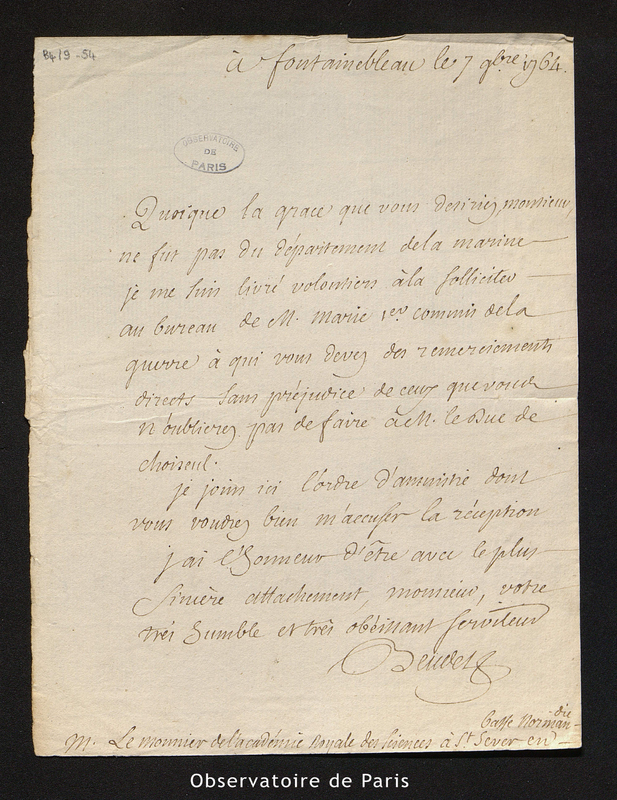 B4/9-54
à fontainebleau le 7 9bre 1764.
OBSERVATOIRE
DE
PARIS
Quoique la grace que vous desiriez, monsieur,
ne fut pas du département dela marine
je me suis livré volontiers àla solliciter
au bureau de M. marie 1er commis dela
guerre à qui vous devez des remerciements
directs sans préjudice de ceux que vous
n'oublierez pas de faire à M. le Duc de
choiseul.
je joins ici l'ordre d'amnistie dont
vous voudrez bien m'accuser la réception
j'ai l'honneur d'être avec le plus
sincère attachement, monsieur, votre
très humble et très obéissant serviteur
Beudet
M. Le monnier de l'académie Royale des sciences à St Sever en
basse Normandie
Observatoire de Paris